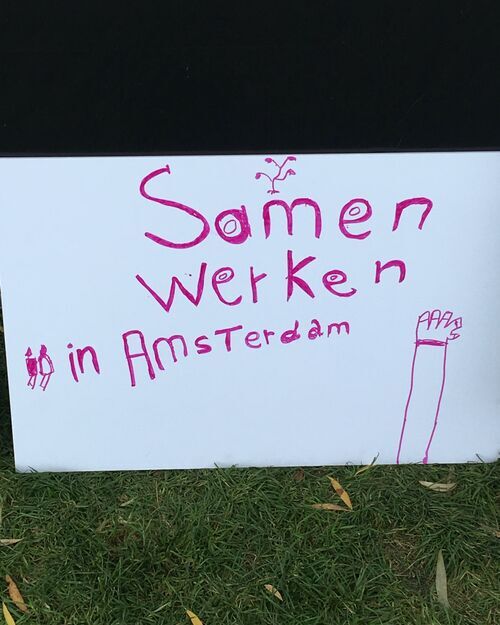 Samen
werken
in Amsterdam